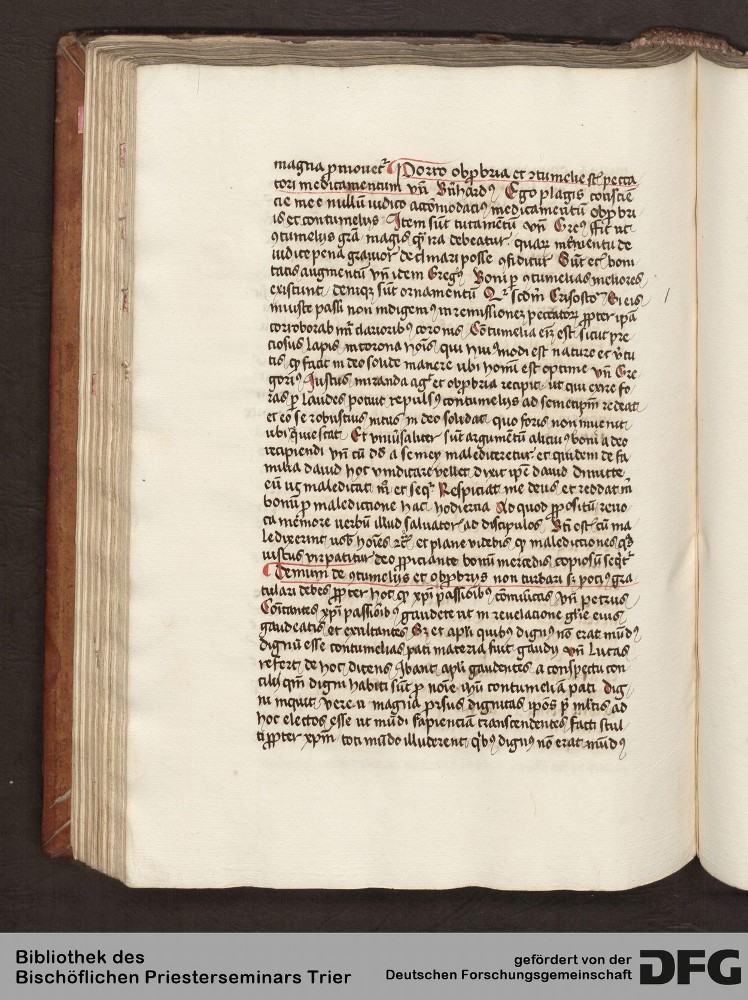 magna promovetur Porro obprobria et contumelie sunt pecca
tori medicamentum unde Bernhardus Ego plagis conscien
cie mee nullum iudico accomodacius medicamentum obprobri
is et contumelijs Item sunt tutamentum unde Gregorius
contumelijs gratia magis quam ira debeatur quarum interventu de
iudice pena gravior declinari posse confiditur Sunt et boni
tatis augmentum unde idem Gregorius Boni per contumelias meliores
existunt denique sunt ornamentum Quia secundum Crisostomum Si eis
iniuste passi non indigemus in remissionem peccatorum propter ipsa
corroborabimur clarioribus coronis Contumelia enim est sicut pre
ciosus lapis in corona hominis qui huiusmodi est nature et virtu
tis quod facit in deo solide manere ubi homini est optime unde Gre
gorius Iustus miranda agit et obprobria recipit ut qui exire fo
ras per laudes potuit repulsus contumelijs ad semetipsum redeat
et eo se robustius intus in deo solidat quo foris non invenit
ubi quiescat Et universaliter sunt argumentum alicuius boni a deo
recipiendi unde cum david a semey malediceretur et quidem de fa
milia david hoc vindicare vellet dixit ipse david dimitte
eum ut maledicat michi et sequitur Respiciat me deus et reddat michi
bonum pro maledictione hac hodierna Ad quod propositum revo
ca memorie verbum illud salvatoris ad discipulos Beati estis cum ma
ledixerint vobis homines etc et plane videbis quod maledictiones quas
iustus vir patitur deo propiciante bonum mercedis copiosum sequitur
Demum de contumelijs et obprobrijs non turbari sed pocius gra
tulari debes propter hoc quod christi passionibus communicas unde petrus
Communicantes christi passionibus gaudete ut in revelacione glorie eius
gaudeatis et exultantes Sed et apostoli quibus dignus non erat mundus
dignum esse contumelias pati materia fuit gaudij unde Lucas
refert de hoc dicens Ibant apostoli gaudentes a conspectu con
cilij quoniam digni habiti sunt pro nomine ihesu contumeliam pati Dig
ni inquit vere magna prorsus dignitas ipsos pre multis ad
hoc electos esse ut mundi sapienciam transcendentes facti stul
ti propter christum toti mundo illuderent quibus dignus non erat mundus
Bibliothek des
Bischöflichen Priesterseminars Trier
gefördert von der
Deutschen Forschungsgemeinschaft
DFG